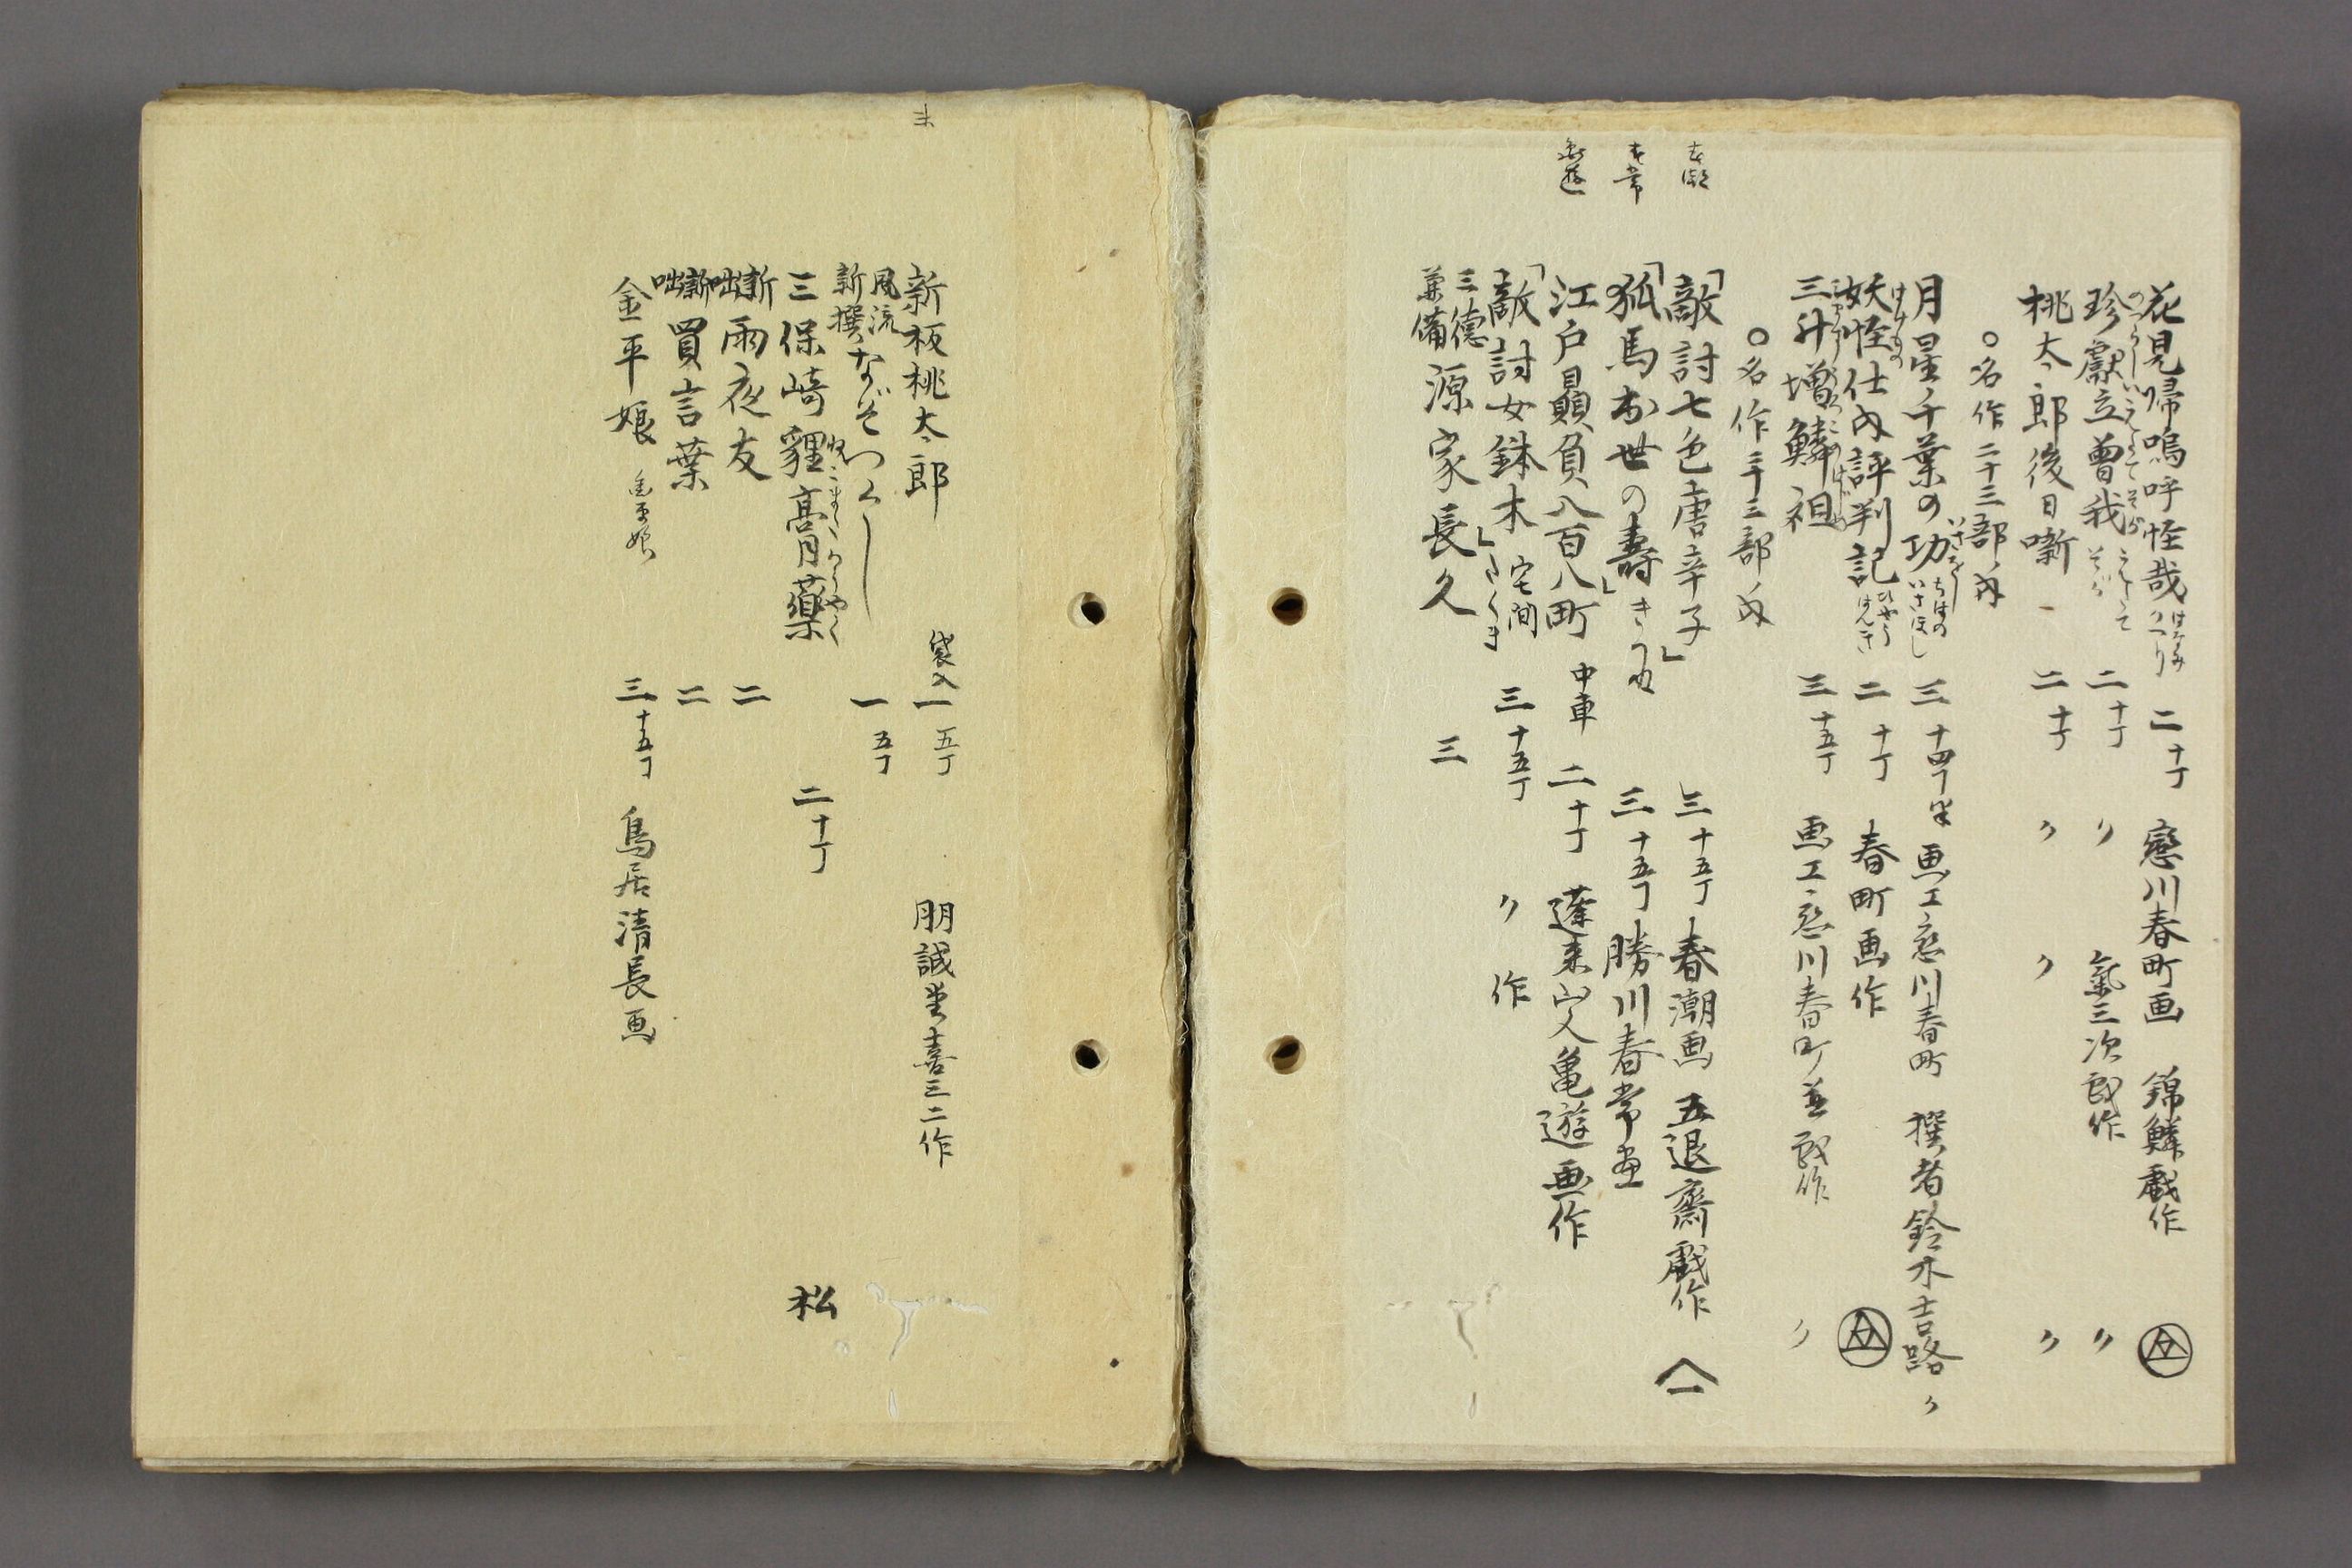 花見帰嗚呼怪哉 はなみかへり 二 十丁 戀川春町画 錦鱗戯作
珍獻立曽我 そが 二 十丁 〃 氣三次戯作 〃
桃太郎後日噺 二 十丁 〃 〃 〃
○名作二十三部ノ内
月星千葉の功 ちはの いさほし 三 十四丁半 画工恋川春町 撰者鈴木吉路 〃
妖怪仕内評判記 ひやう はんき 二 十丁 春町画作
三升増鱗祖 三 十五丁 画工恋川春町並戯作 〃
○名作三十三部ノ内
春潮
「敵討七色唐辛子」 三 十五丁 春潮画 五退齋戯作
春常
「狐馬出世の壽」 三 十五丁 勝川春常画
亀遊
江戸贔負八百八町 中車 二 十丁 蓬莱山人亀遊画作
「敵討女鉢木」 三 十五丁 〃 作
三德兼備 源家長久 三
新板桃太郎 袋入 一 五丁 朋誠堂喜三二作
風流新撰 なぞつくし 一 五丁
三保崎貍膏藥 二 十丁 松
新咄 雨夜友 二
新咄 買言葉 二
金平娘 金平娘 三 十五丁 鳥居清長画